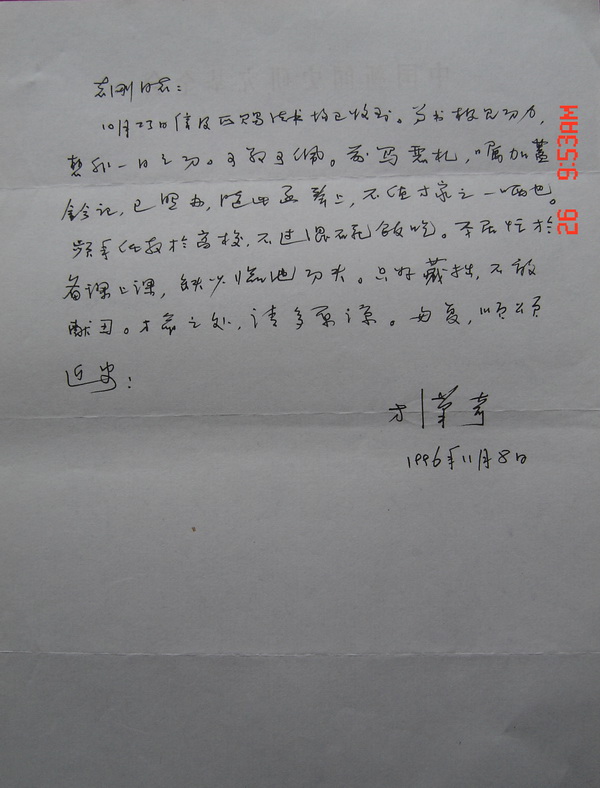 志刚同志:
10月23日信及所赐法书均已收到。 兄书极见功力,
愁非一日之功。可敬可佩。 写恶札,嘱加盖
钤记,已照办,随函奉上,不值方家之一哂也。
频年任教於高校,不过混碗饭吃。平居忙於
备课上课,缺少临池功夫。只好藏拙,不敢
献丑。方命之处,请多原谅。匆复,顺颂
近安!
方汉奇
1996年11月8日
26 9:53AM